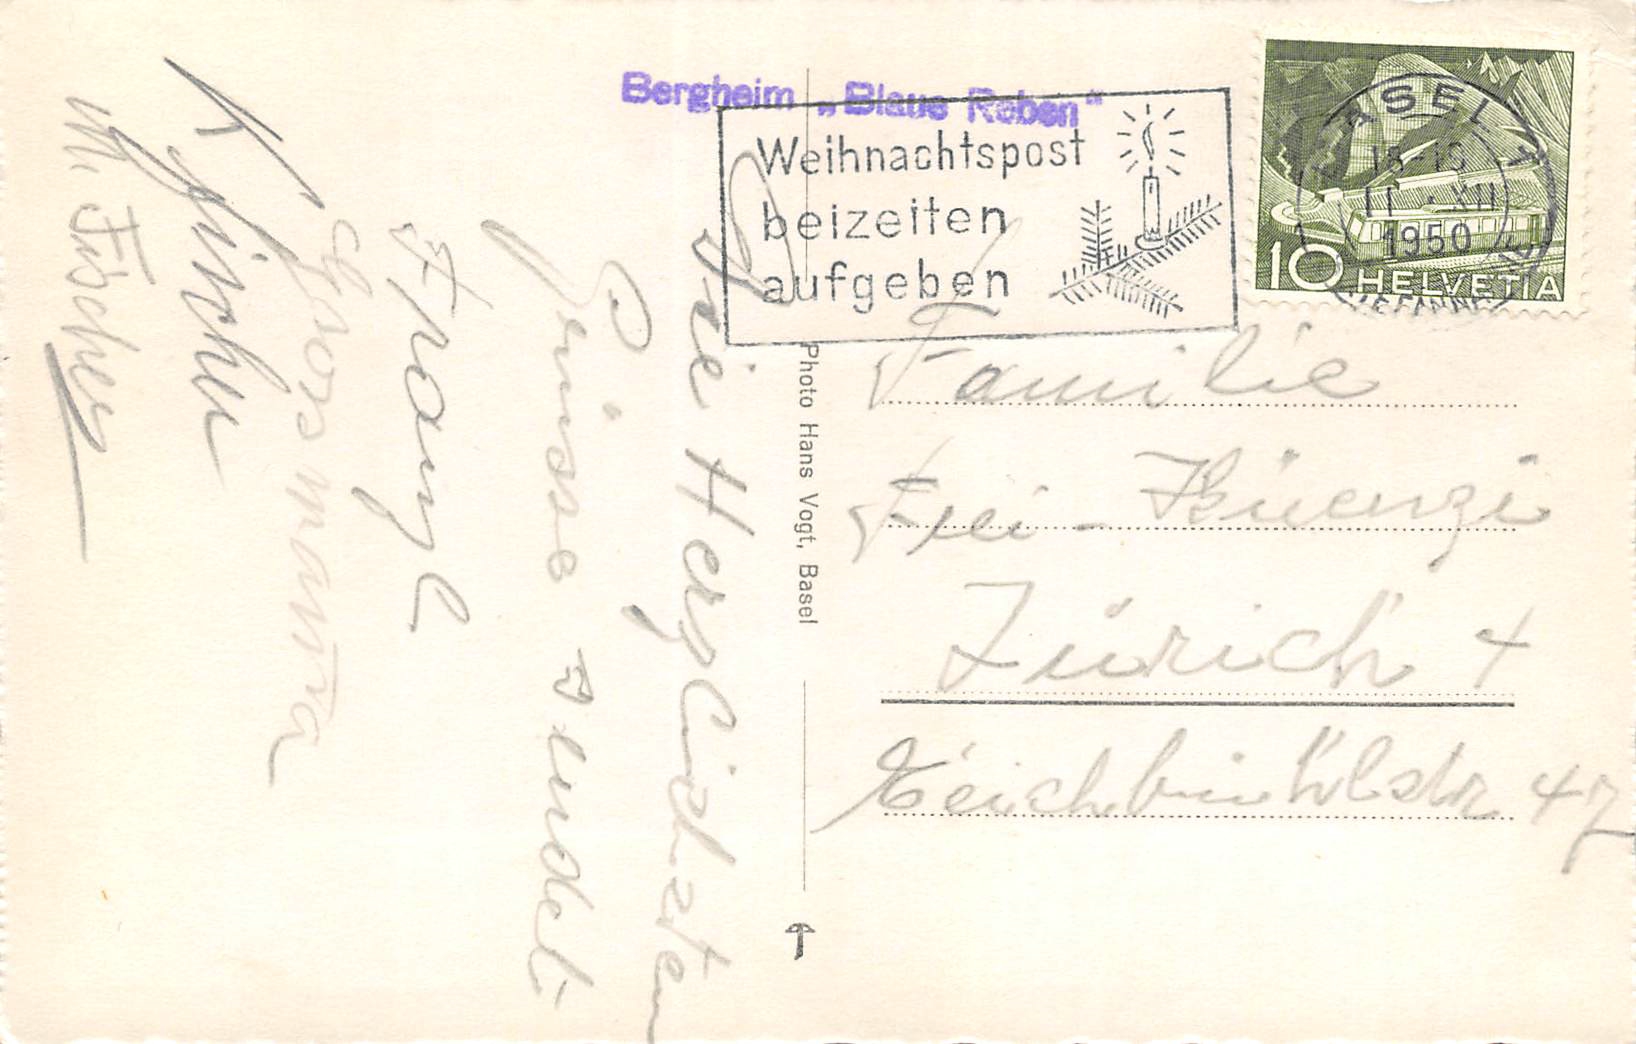 Bergheim „Blaue Reben"
Weihnachtspost
beizeiten
aufgeben
BASEL 1
18-19
11.XII
1950
BRIEFANNAHME
10 HELVETIA
Familie
Frei-Küenzi
Zürich 4
47
Photo Hans Vogt, Basel
Die Herzlichsten
Grüsse sendet
Franz
Grosmama
K. Fischer
M. Fischer